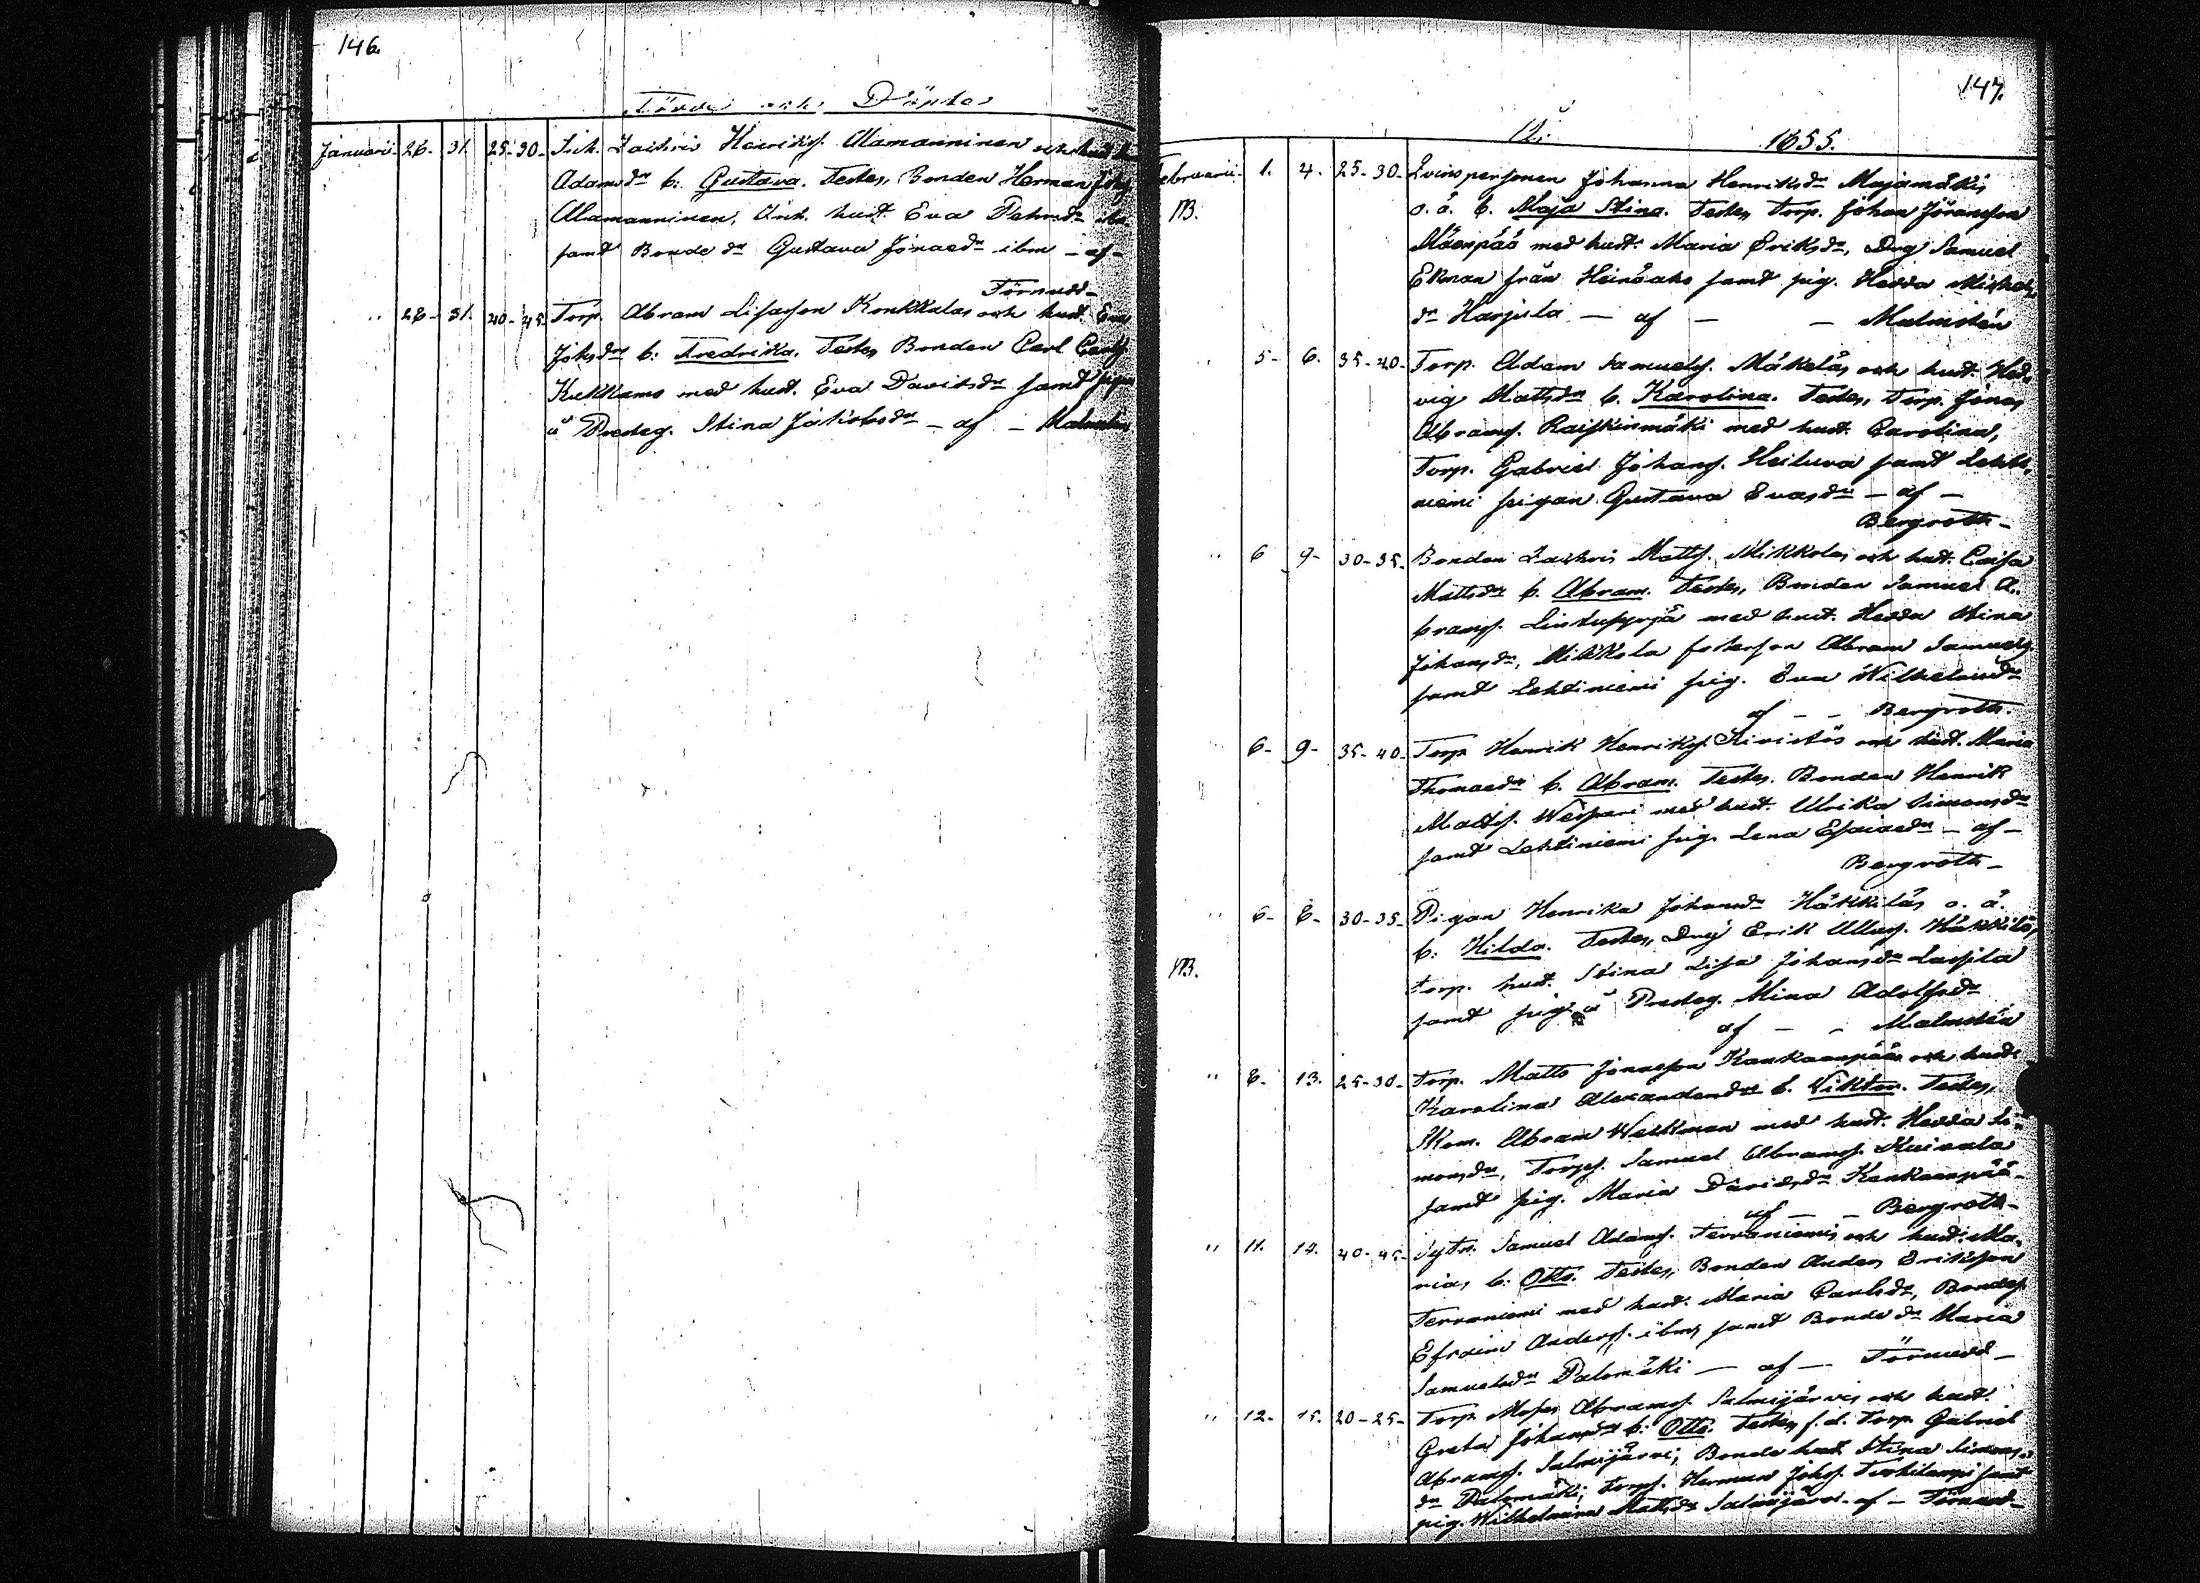 146.
Födde och Döpte
Januarii 26. 31. 25-30. Inh. Zachris Henriksf. Alamanninen och hust.
Adamsdr b: Gustava. Testes, Bonden Herman Johsf.
Alamanninen, Inh. hust. Eva
samt Bonde dr Gustava Jonaedr ibm - af -
Törnudd-
" 26- 31. 40-45. Torp. Abram Lisasson Konkkalas och hust. Eva
Johsdr b: Fredrika. Testes Bonden Carl Carlsf.
Kukkamo med hust. Eva Davidsdr samt pigan
å Presteg. Stina Jakobsdr - af - Malmstén
147.
År 1855.
Februarii. 1. 4. 25-30- Qvinspersonen Johanna Henriksdr Majamäkis
NB. o. ä. b. Maja Stina. Testes Torp. Johan Jöransson
Mäenpää med hust: Maria Eriksdr, Drg Samuel
Ekman från Heinäaho samt pig. Hedda Michels
dr Harjula - af - - Malmstén
5- 6. 35-40- Torp. Adam Samuelsf. Mäkeläs och hust. Hed-
vig Mattsdr b. Karolina. Testes, Torp. Jonas
Abramsf. Raiskinmäki med hust. Carolina,
Torp. Gabriel Johansf. Heiluva samt Lehti-
niemi pigan Gustava Evasdr - af -
Bergroth-
" 6 9- 30-35. Bonden Zachris Mattsf. Mikkolas och hust. Caisa
Mattsdr b. Abram. Testes, Bonden Samuel A-
bramsf. Lintupyrjä med hust. Hedda Stina
Johansdr, Mikkola foderson Abram Samuelsf.
samt Lehtiniemi pig. Eva Wilhelmsdr
af - - Bergroth.
6- 9- 35-40- Torp Henrik Henriksf. Kivistös och hust. Maria
Thomaedr b. Abram. Testes. Bonden Henrik
Mattsf. Wespari med hust. Ulrika Simonsdr
samt Lehtiniemi pig. Lena Esaiaedr - af -
Bergroth-
" 6- 6- 30-35- Pigan Henrika Johansdr Häkkiläs o. ä.
b: Hilda. Testes, Drg Erik Ulasf. Häkkilä,
NB. torp. hust. Stina Lisa Johansdr Lassila
samt pig. å Presteg. Mina Adolfsdr
af - - Malmstén
" 6- 13. 25-30- Torp. Matts Jonasson Kankaanpääs och hust.
Karolina Alexandersdr b. Wiktor. Testes,
Skom. Abram Werkman med hust. Hedda Si-
monsdr, Torpsf. Samuel Abramsf. Kuivala
samt pig. Maria Davidsdr Kankaanpää-
af - - Bergroth-
" 11. 14. 40-45- Sytn. Samuel Adamsf. Tervaniemis och hust. Ma-
ria, b: Otto. Testes, Bonden Anders Eriksson
Tervaniemi med hust. Maria Carlsdr, Bondesf.
Efraim Andersf. ibm, samt Bonde dr Maria
Samuelsdr Palomäki - af - Törnudd-
" 12- 15. 20-25- Torp. Moses Abramsf. Salmijärvis och hust.
Greta Johansdr b: Otto. Testes f.d. Torp. Gabriel
Abramsf. Salmijärvi, Bonde hust. Stina Simons-
dr Palomäki, Torpsf. Herman Johsf. samt
pig. Wilhelmina Mattsdr Salmijärvi - af - Törnudd-